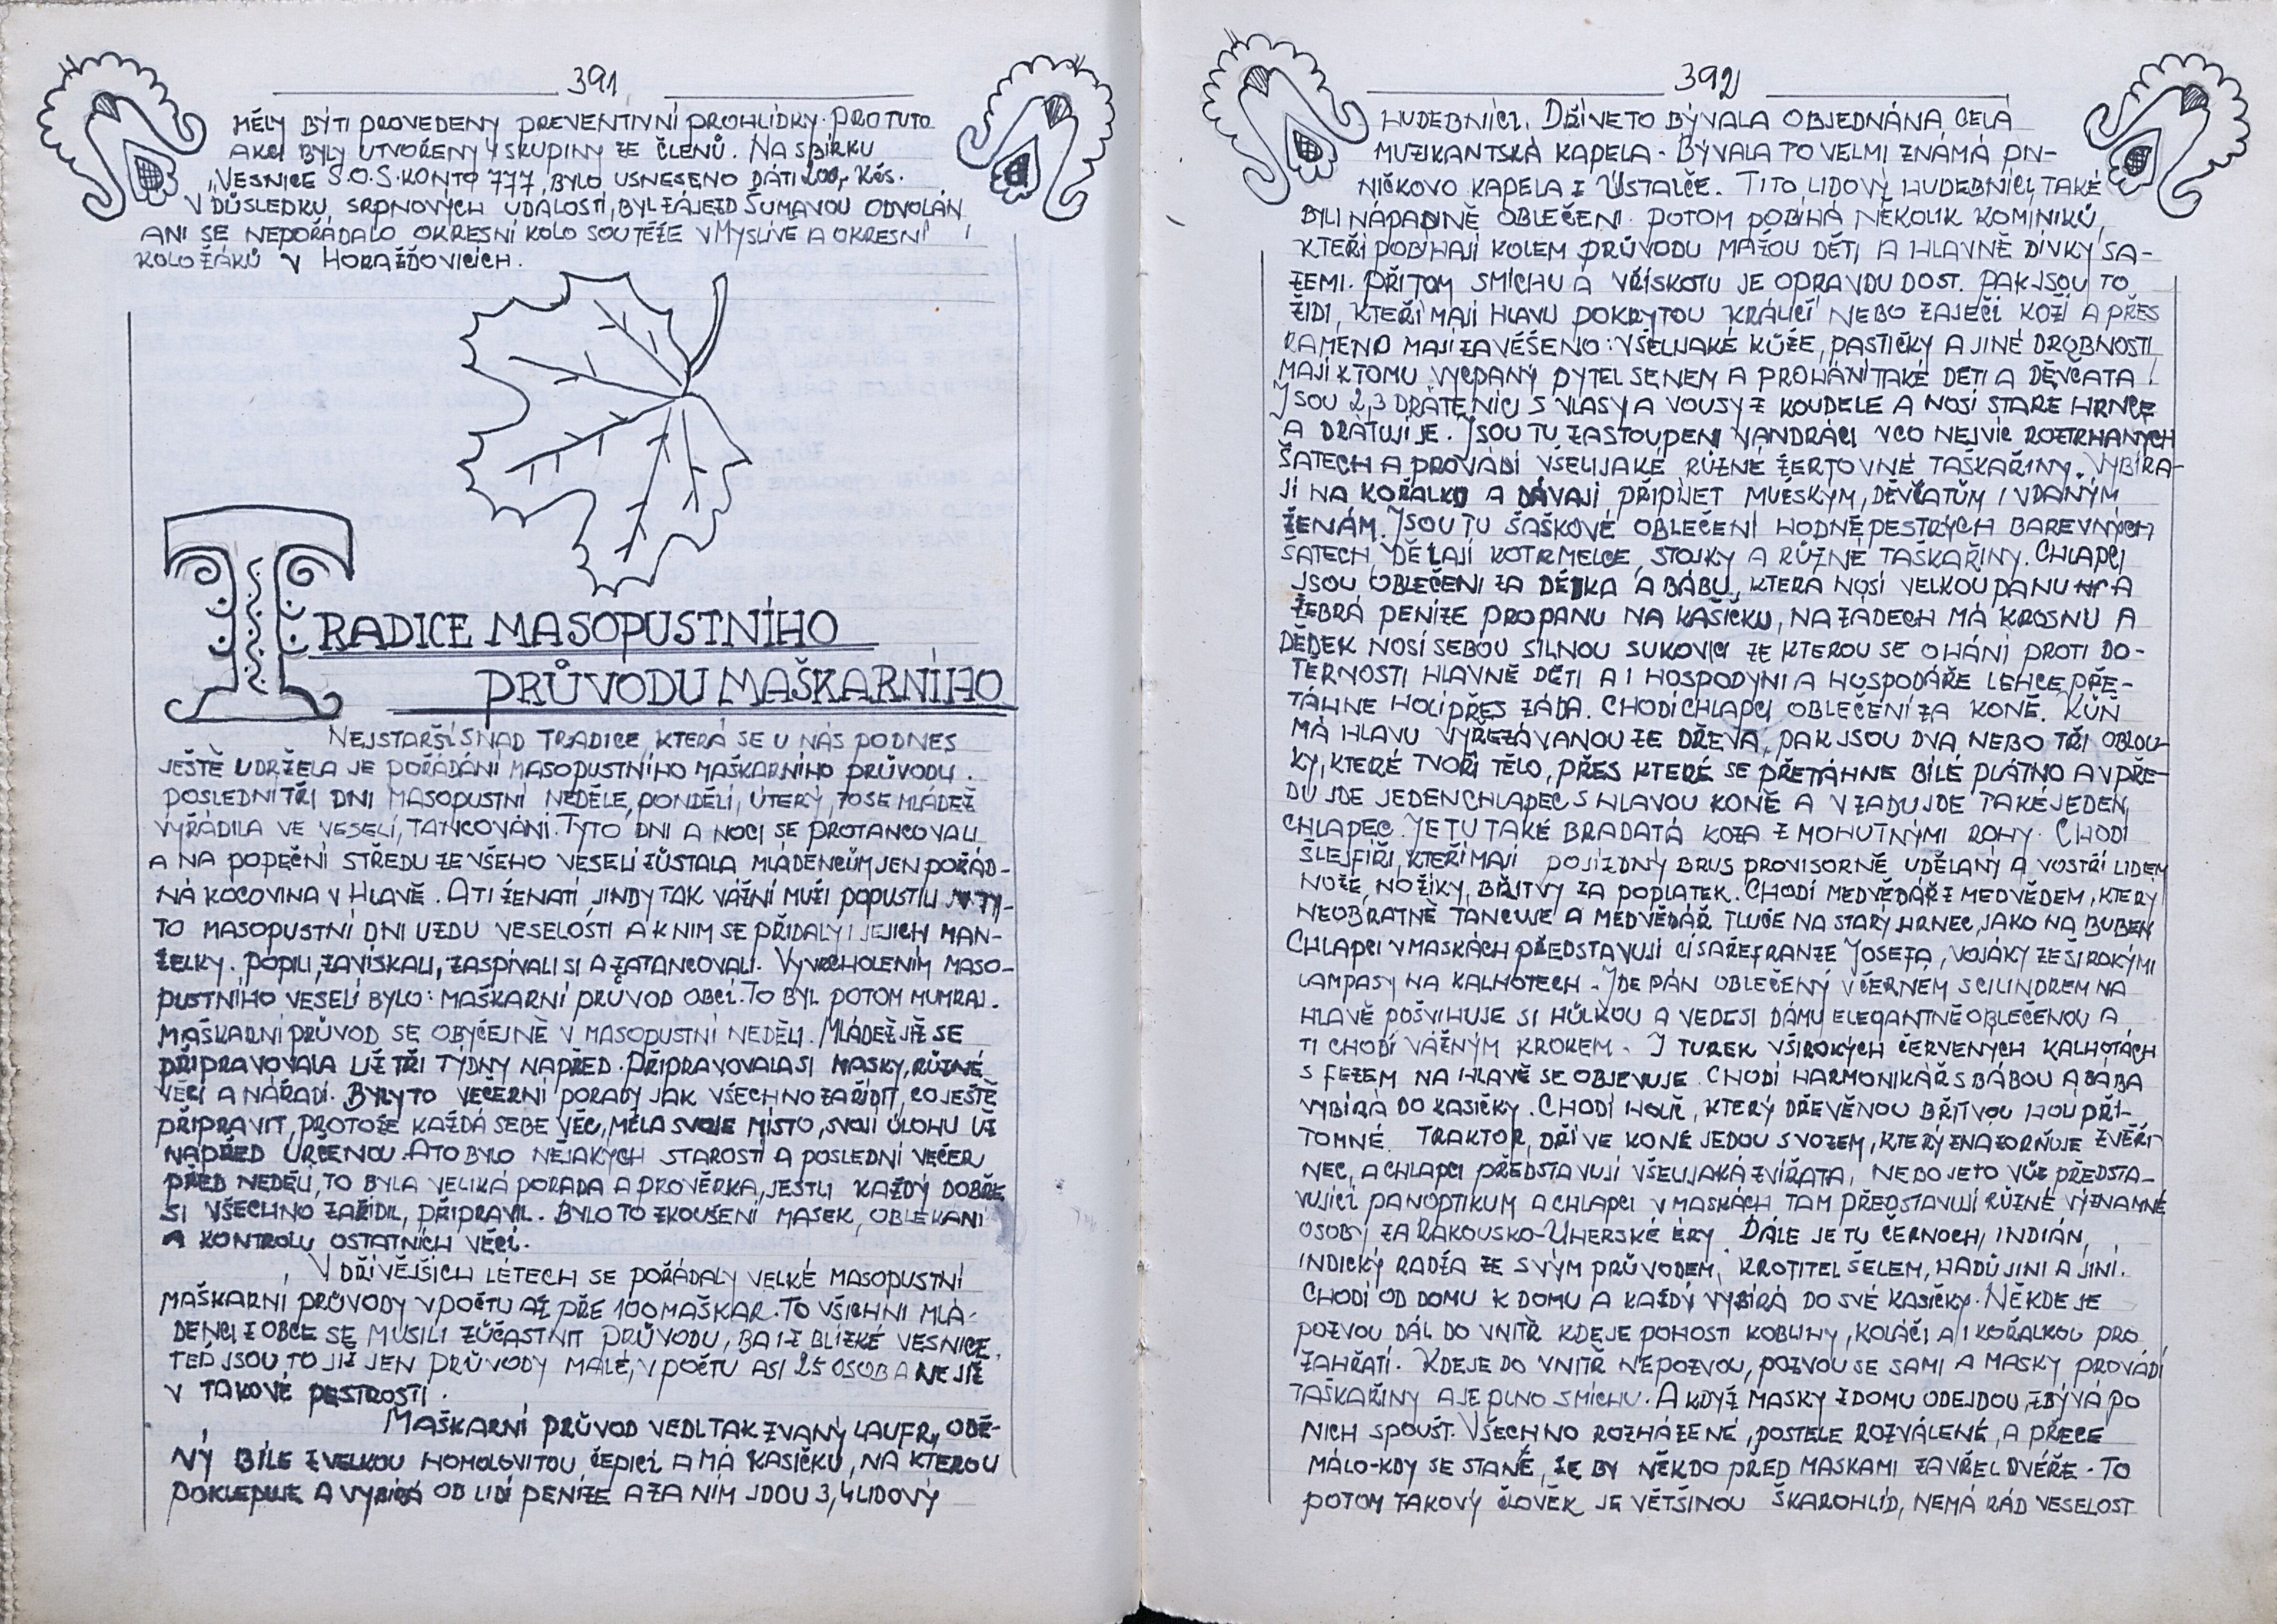 391
MĚLY BÝTI PROVEDENY PREVENTIVNÍ PROHLÍDKY. PRO TUTO
AKCI BYLY UTVOŘENY 4 SKUPINY ZE ČLENŮ. NA SBÍRKU
„VESNICE S.O.S. KONTO 777, BYLO USNESENO DÁTI 200,- Kčs.
V DŮSLEDKU SRPNOVÝCH UDÁLOSTÍ, BYL ZÁJEZD ŠUMAVOU ODVOLÁN
ANI SE NEPOŘÁDALO OKRESNÍ KOLO SOUTĚŽE V MYSLÍVĚ A OKRESNÍ
KOLO ŽÁKŮ V HORAŽĎOVICÍCH.
TRADICE MASOPUSTNÍHO
PRŮVODU MAŠKARNÍHO
NEJSTARŠÍ SNAD TRADICE, KTERÁ SE U NÁS PODNES
JEŠTĚ UDRŽELA JE POŘÁDÁNÍ MASOPUSTNÍHO MAŠKARNÍHO PRŮVODU.
POSLEDNÍ TŘI DNI MASOPUSTNÍ NEDĚLE, PONDĚLÍ, ÚTERÝ, TO SE MLÁDEŽ
VYŘÁDILA VE VESELÍ, TANCOVÁNÍ. TYTO DNI A NOCI SE PROTANCOVALI
A NA POPEČNÍ STŘEDU ZE VŠEHO VESELÍ ZŮSTALA MLÁDENCŮM JEN POŘÁD-
NÁ KOCOVINA V HLAVĚ. A TI ŽENATÍ, JINDY TAK VÁŽNÍ MUŽI POPUSTILI V TY-
TO MASOPUSTNÍ DNI UZDU VESELOSTI A K NIM SE PŘIDALY I JEJICH MAN-
ŽELKY. POPILI, ZAVÍSKALI, ZASPÍVALI SI A ZATANCOVALI. VYVRCHOLENÍM MASO-
PUSTNÍHO VESELÍ BYLO: MAŠKARNÍ PRŮVOD OBCÍ. TO BYL POTOM MUMRAJ.
MAŠKARNÍ PRŮVOD SE OBYČEJNĚ V MASOPUSTNÍ NEDĚLI. MLÁDEŽ JIŽ SE
PŘIPRAVOVALA UŽ TŘI TÝDNY NAPŘED. PŘIPRAVOVALA SI MASKY, RŮZNÉ
VĚCI A NÁŘADÍ. BYRYTO VEČERNÍ PORADY JAK VŠECHNO ZAŘÍDIT, CO JEŠTĚ
PŘIPRAVIT, PROTOŽE KAŽDÁ SEBE VĚC, MĚLA SVOJE MÍSTO, SVOJI ÚLOHU UŽ
NAPŘED URČENOU. A TO BYLO NĚJAKÝCH STAROSTÍ A POSLEDNÍ VEČER
PŘED NEDĚLÍ, TO BYLA VELIKÁ PORADA A PROVĚRKA, JESTLI KAŽDÝ DOBŘE
SI VŠECHNO ZAŘÍDIL, PŘIPRAVIL. BYLO TO ZKOUŠENÍ MASEK, OBLÉKÁNÍ
A KONTROLU OSTATNÍCH VĚCÍ.
V DŘÍVĚJŠÍCH LÉTECH SE POŘÁDALY VELKÉ MASOPUSTNÍ
MAŠKARNÍ PRŮVODY V POČTU AŽ PŘE 100 MAŠKAR. TO VŠICHNI MLÁ-
DENCI Z OBCE SE MUSILI ZÚČASTNIT PRŮVODU, BA I Z BLÍZKÉ VESNICE.
TEĎ JSOU TO JIŽ JEN PRŮVODY MALÉ, V POČTU ASI 25 OSOB A NE JIŽ
V TAKOVÉ PESTROSTI.
MAŠKARNÍ PRŮVOD VEDL TAK ZVANÝ LAUFR, ODĚ-
NÝ BÍLE Z VELKOU HOMOLOVITOU ČEPICÍ A MÁ KASIČKU, NA KTEROU
POKLEPUJE A VYBÍRÁ OD LIDÍ PENÍZE A ZA NÍM JDOU 3, 4 LIDOVÝ
392
HUDEBNÍCI. DŘÍVE TO BÝVALA OBJEDNÁNA CELÁ
MUZIKANTSKÁ KAPELA. BÝVALA TO VELMI ZNÁMÁ PN-
NÍČKOVO KAPELA Z ÚSTALČE. TITO LIDOVÝ HUDEBNÍCI TAKÉ
BYLI NÁPADNĚ OBLEČENI. POTOM POBÍHÁ NĚKOLIK KOMINÍKŮ,
KTEŘÍ POBÍHAJÍ KOLEM PRŮVODU MAŽOU DĚTI, A HLAVNĚ DÍVKY SA-
ZEMI. PŘITOM SMÍCHU A VŘÍSKOTU JE OPRAVDU DOST. PAK JSOU TO
ŽIDI, KTEŘÍ MAJÍ HLAVU POKRYTOU KRÁLIČÍ NEBO ZAJEČÍ KOŽÍ A PŘES
RAMENO MAJÍ ZAVĚŠENO: VŠELIJAKÉ KŮŽE, PASTIČKY A JINÉ DROBNOSTI
MAJÍ K TOMU VYCPANÝ PYTEL SENEM A PROHÁNÍ TAKÉ DĚTI A DĚVČATA.
JSOU 2,3 DRÁTENÍCI S VLASY A VOUSY Z KOUDELE A NOSÍ STARÉ HRNCE
A DRÁTUJÍ JE. JSOU TU ZASTOUPENI VANDRÁCI V CO NEJVÍC ROZTRHANÝCH
ŠATECH A PROVÁDÍ VŠELIJAKÉ RŮZNÉ ŽERTOVNÉ TAŠKAŘINY. VYBÍRA-
JÍ NA KOŘALKU A DÁVAJÍ PŘIPÍJET MUŽSKÝM, DĚVČATŮM I VDANÝM
ŽENÁM. JSOU TU ŠAŠKOVÉ OBLEČENÍ HODNĚ PESTRÝCH BAREVNÝCH
ŠATECH, DĚLAJÍ KOTRMELCE, STOJKY A RŮZNÉ TAŠKAŘINY. CHLAPCI
JSOU OBLEČENI ZA DĚDKA A BÁBU, KTERÁ NOSÍ VELKOU PANU A
ŽEBRÁ PENÍZE PRO PANU NA KAŠIČKU, NA ZÁDECH MÁ KROSNU A
DĚDEK NOSÍ SEBOU SILNOU SUKOVICI ZE KTEROU SE OHÁNÍ PROTI DO-
TĚRNOSTI HLAVNĚ DĚTI A I HOSPODYNI A HOSPODÁŘE LEHCE PŘE-
TÁHNE HOLÍ PŘES ZÁDA. CHODÍ CHLAPCI OBLEČENÍ ZA KONĚ. KŮŇ
MÁ HLAVU VYŘEZÁVANOU ZE DŘEVA, PAK JSOU DVA NEBO TŘI OBLOU-
KY, KTERÉ TVOŘÍ TĚLO, PŘES KTERÉ SE PŘETÁHNE BÍLÉ PLÁTNO A VPŘE-
DU JDE JEDEN CHLAPEC S HLAVOU KONĚ A VZADU JDE TAKÉ JEDEN
CHLAPEC. JE TU TAKÉ BRADATÁ KOZA Z MOHUTNÝMI ROHY. CHODÍ
ŠLEJFÍŘI, KTEŘÍ MAJÍ POJÍZDNÝ BRUS PROVISORNĚ UDĚLANÝ A VOSTŘÍ LIDEM
NOŽE, NOŽÍKY, BŘITVY ZA POPLATEK. CHODÍ MEDVĚDÁŘ Z MEDVĚDEM, KTERÝ
NEOBRATNĚ TANCUJE A MEDVĚDÁŘ TLUČE NA STARÝ HRNEC, JAKO NA BUBEN
CHLAPCI V MASKÁCH PŘEDSTAVUJÍ CÍSAŘE FRANZE JOSEFA, VOJÁKY ZE ŠIROKÝMI
LAMPASY NA KALHOTECH. JDE PÁN OBLEČENÝ V ČERNÉM S CILINDREM NA
HLAVĚ POŠVIHUJE SI HŮLKOU A VEDE SI DÁMU ELEGANTNĚ OBLEČENOU A
TI CHODÍ VÁŽNÝM KROKEM. I TUREK V ŠIROKÝCH ČERVENÝCH KALHOTÁCH
S FEZEM NA HLAVĚ SE OBJEVUJE. CHODÍ HARMONIKÁŘ S BÁBOU A BÁBA
VYBÍRÁ DO KASIČKY. CHODÍ HOLIČ, KTERÝ DŘEVĚNOU BŘITVOU HOLÍ PŘÍ-
TOMNÉ. TRAKTOR, DŘÍVE KONĚ JEDOU S VOZEM, KTERÝ ZNÁZORŇUJE ZVĚŘI
NEC, A CHLAPCI PŘEDSTAVUJÍ VŠELIJAKÁ ZVÍŘATA, NEBO JE TO VŮZ PŘEDSTA-
VUJÍCÍ PANOPTIKUM A CHLAPCI V MASKÁCH TAM PŘEDSTAVUJÍ RŮZNÉ VÝZNAMNÉ
OSOBY ZA RAKOUSKO-UHERSKÉ ÉRY. DÁLE JE TU ČERNOCH, INDIÁN,
INDICKÝ RADŽA ZE SVÝM PRŮVODEM, KROTITEL ŠELEM, HADŮ JINI A JINÍ.
CHODÍ OD DOMU K DOMU A KAŽDÝ VYBÍRÁ DO SVÉ KASIČKY. NĚKDE JE
POZVOU DÁL DO VNITŘ KDE JE POHOSTÍ KOBLIHY, KOLÁČI A I KOŘALKOU PRO
ZAHŘÁTÍ. KDE JE DO VNITŘ NEPOZVOU, POZVOU SE SAMI A MASKY PROVÁDÍ
TAŠKAŘINY A JE PLNO SMÍCHU. A KDYŽ MASKY Z DOMU ODEJDOU, ZBÝVÁ PO
NICH SPOUŠŤ. VŠECHNO ROZHÁZENÉ, POSTELE ROZVÁLENÉ, A PŘECE
MÁLO-KDY SE STANE, ŽE BY NĚKDO PŘED MASKAMI ZAVŘEL DVÉŘE. TO
POTOM TAKOVÝ ČLOVĚK JE VĚTŠINOU ŠKAROHLÍD, NEMÁ RÁD VESELOST